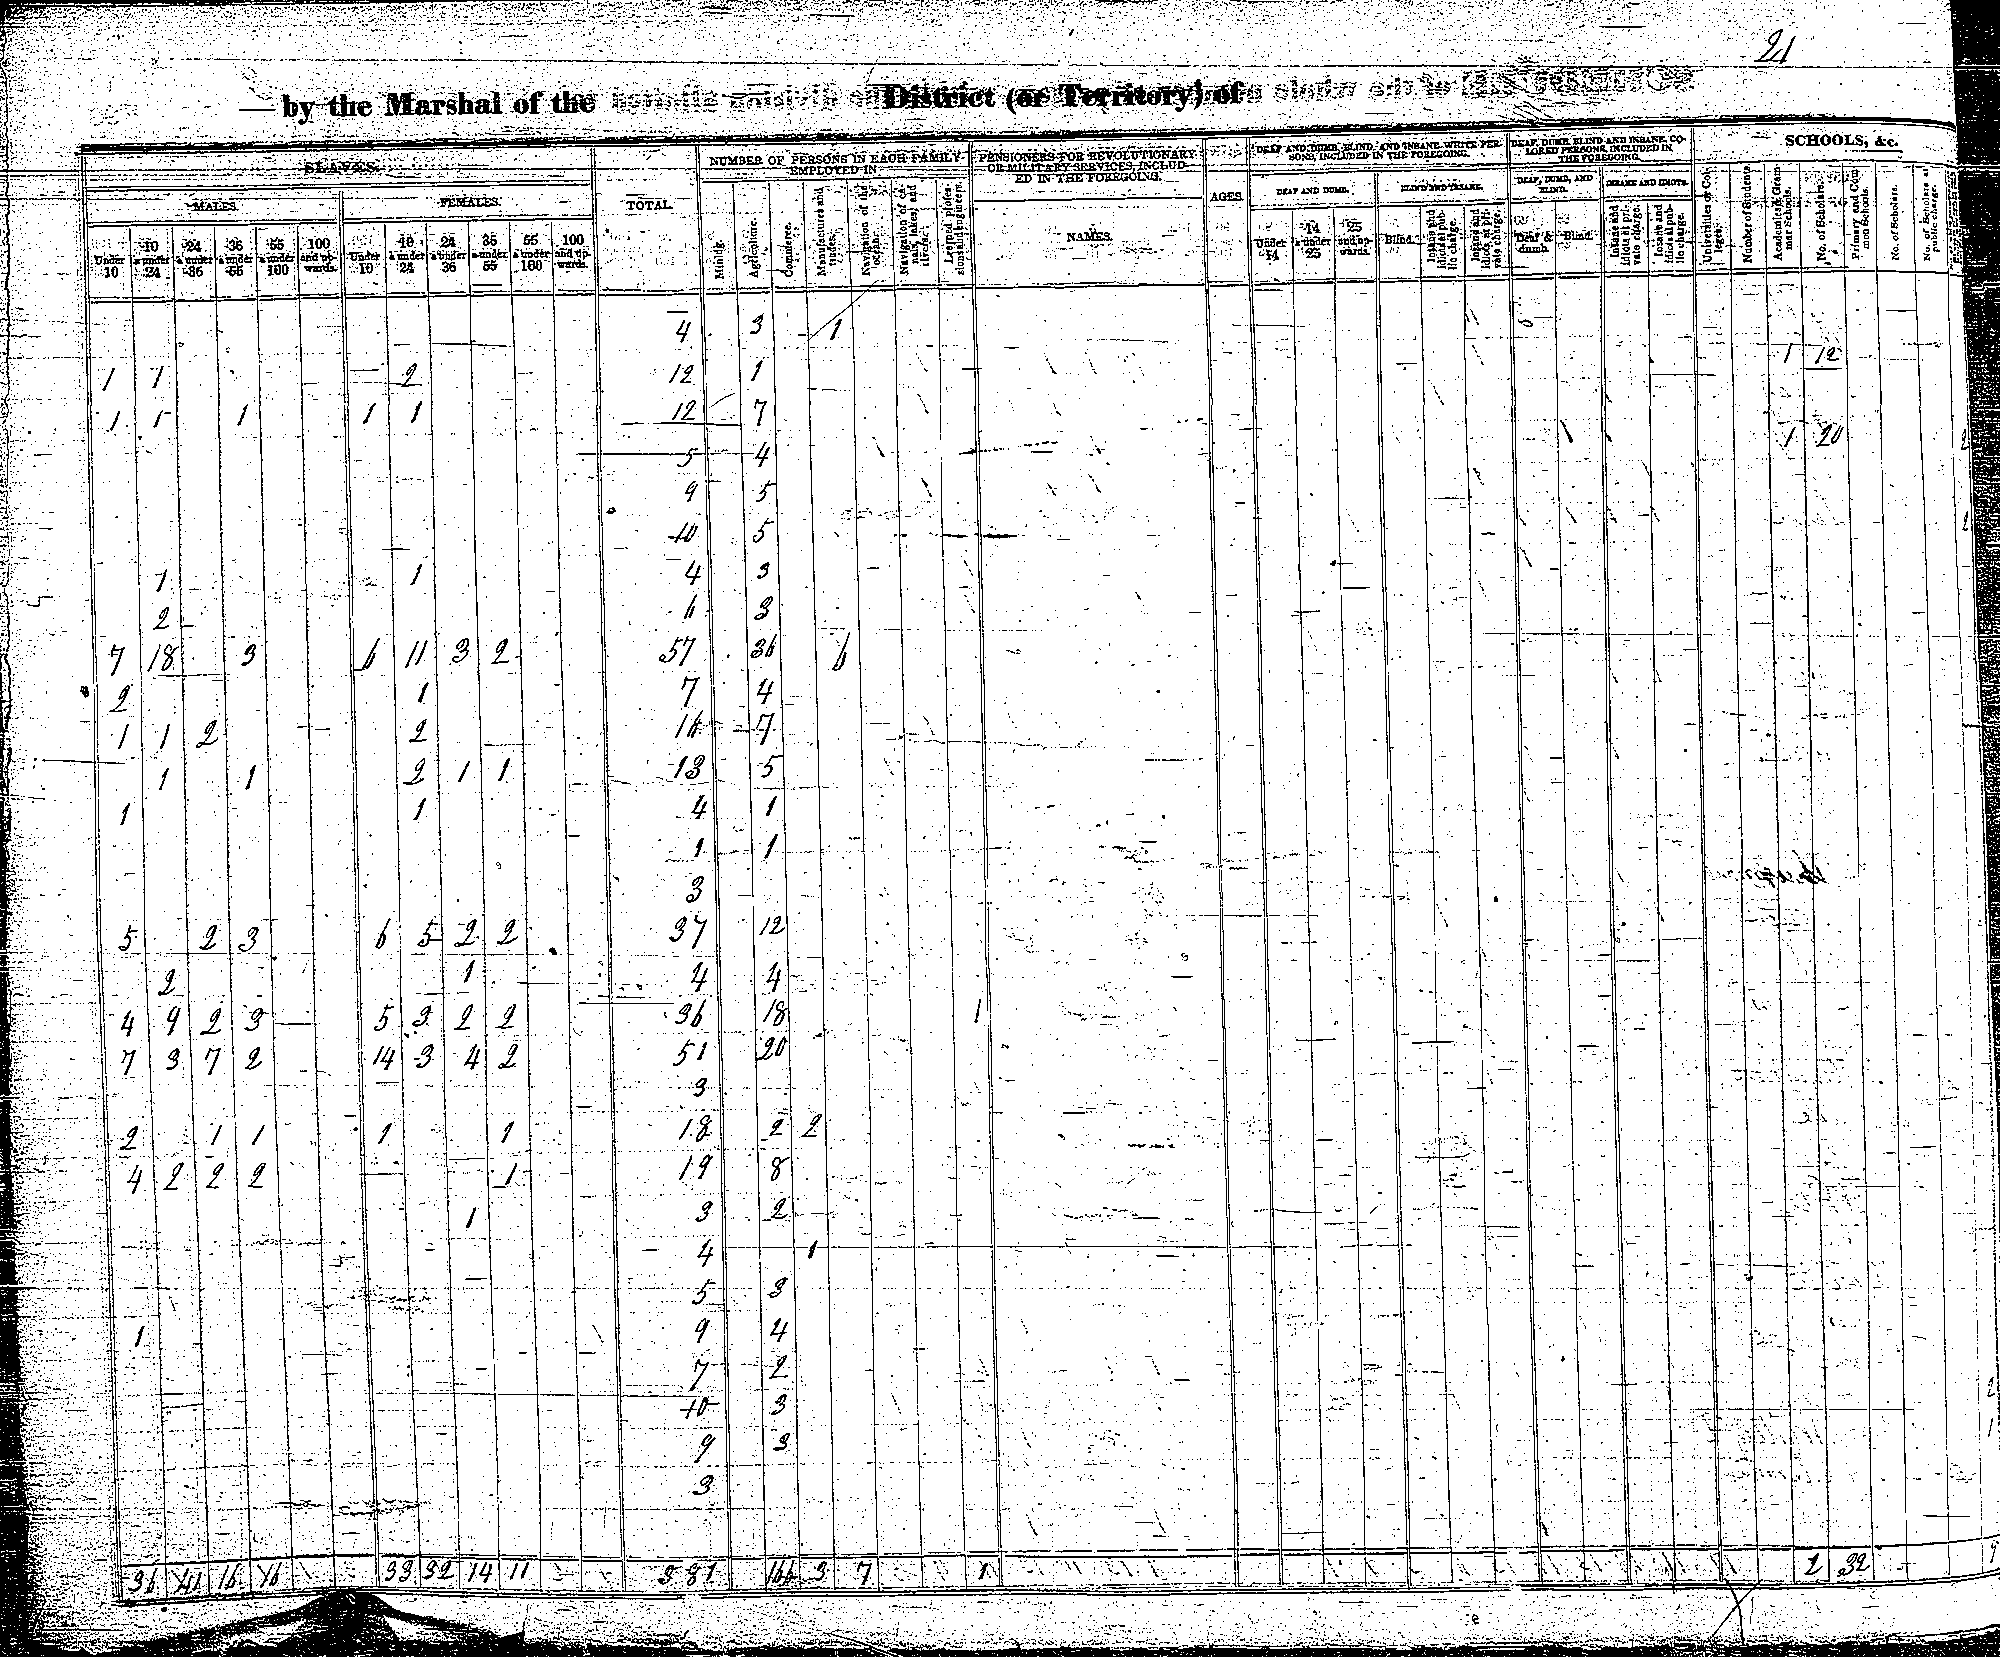 21
by the Marshal of the District (or Territory) of
SLAVES. TOTAL. NUMBER OF PERSONS IN EACH FAMILY EMPLOYED IN PENSIONERS FOR REVOLUTIONARY OR MILITARY SERVICES, INCLUDED IN THE FOREGOING. AGES. DEAF AND DUMB, BLIND, AND INSANE WHITE PERSONS, INCLUDED IN THE FOREGOING. DEAF, DUMB, BLIND AND INSANE COLORED PERSONS, INCLUDED IN THE FOREGOING. SCHOOLS, &c.
MALES. FEMALES. NAMES. DEAF AND DUMB. BLIND AND INSANE. DEAF, DUMB, AND BLIND. INSANE AND IDIOTS.
Under 10 10 & under 24 24 & under 36 36 & under 55 55 & under 100 100 and upwards. Under 10 10 & under 24 24 & under 36 36 & under 55 55 & under 100 100 and upwards.
Mining. Agriculture. Commerce. Manufactures and trades. Navigation of the ocean. Navigation of canals, lakes, and rivers. Learned professions and engineers.
Under 14 14 & under 25 25 and upwards. Blind. Insane and idiots at public charge. Insane and idiots at private charge. Deaf & dumb. Blind. Insane and idiots at private charge. Insane and idiots at public charge.
Universities or Colleges. Number of Students. Academies & Grammar Schools. No. of Scholars. Primary and Common Schools. No. of Scholars. No. of Scholars at public charge.
4 3 1
1 12
1 1 2 12 1
1 1 1 1 1 12 7
1 20
5 4
9 5
10 5
1 1 4 3
2 6 3
7 18 3 6 11 3 2 57 36 6
2 1 7 4
1 1 2 2 14 7
1 1 2 1 1 13 5
1 1 4 1
1 1
3
5 2 3 6 5 2 2 37 12
2 1 4 4
4 9 2 3 5 3 2 2 36 18 1
7 3 7 2 14 3 4 2 51 20
3
2 1 1 1 1 18 2 2
4 2 2 2 1 19 8
1 3 2
4 1
5 3
1 9 4
7 2
10 3
9 3
3
36 41 16 16 33 32 14 11 381 166 3 7 1 2 32